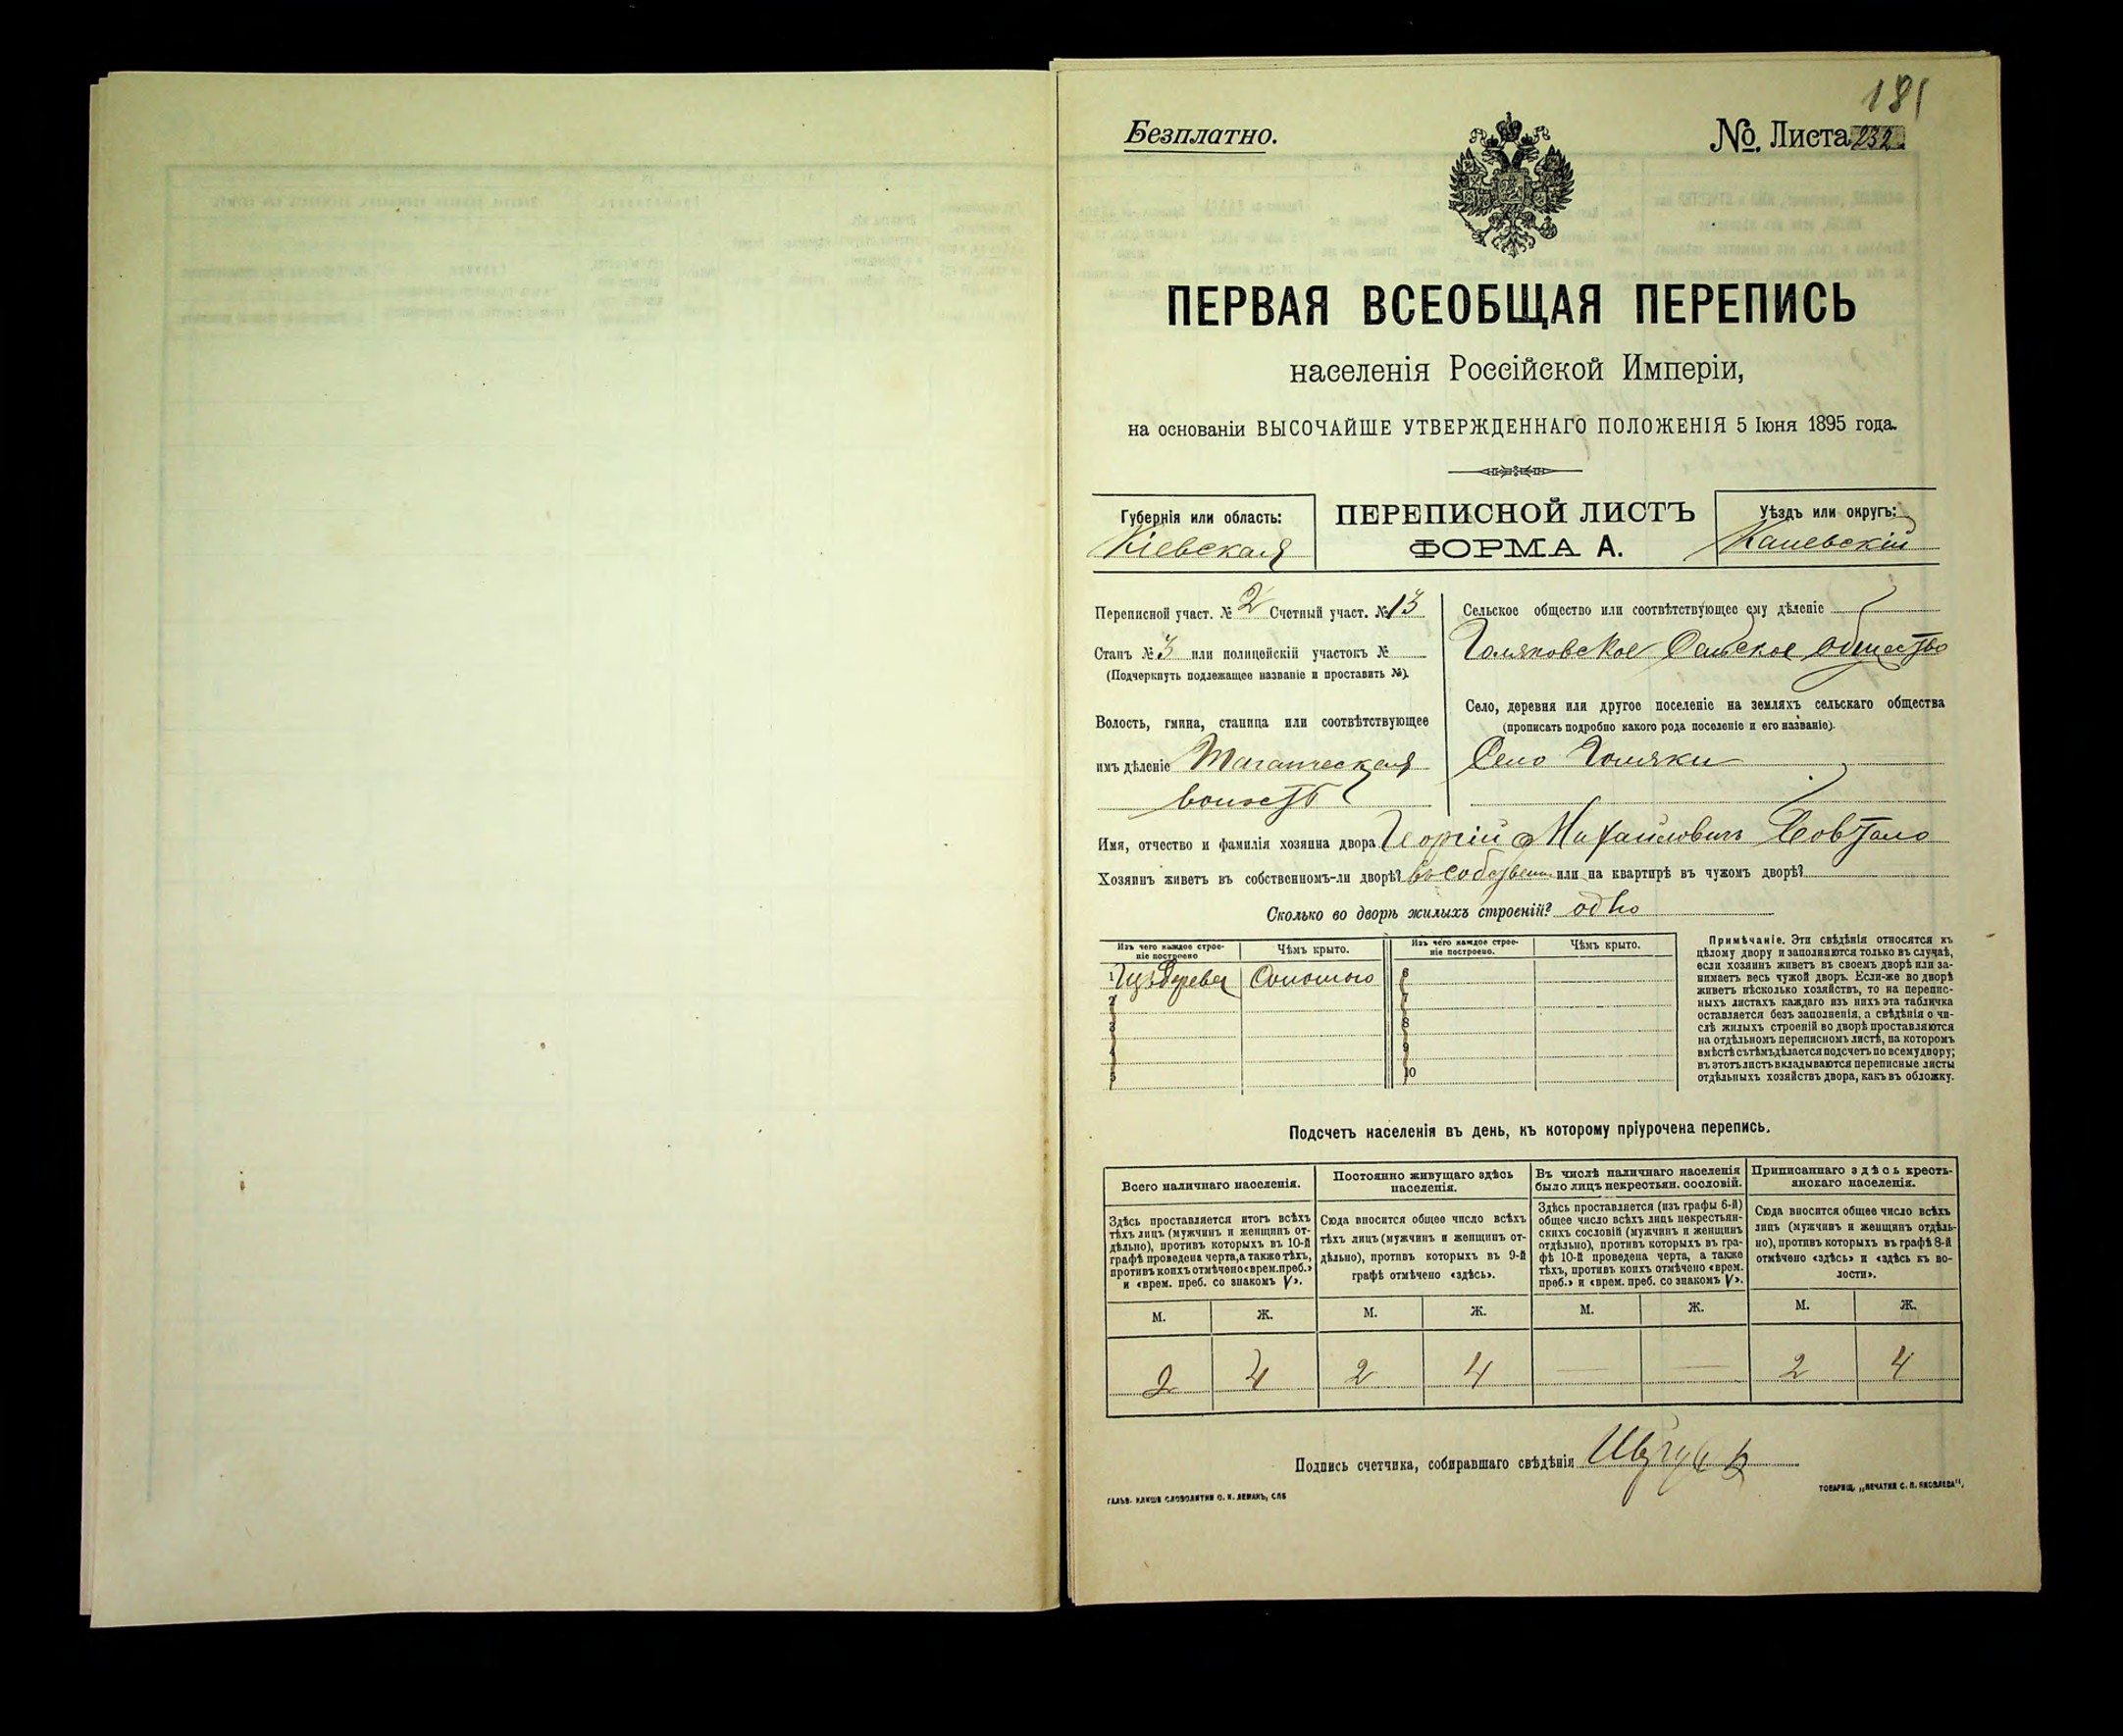 181
Безплатно.
№. Листа 232
ПЕРВАЯ ВСЕОБЩАЯ ПЕРЕПИСЬ
населенія Россійской Имперіи,
на основаніи ВЫСОЧАЙШЕ УТВЕРЖДЕННАГО ПОЛОЖЕНІЯ 5 Іюня 1895 года.
Губернія или область:
Кіевская
ПЕРЕПИСНОЙ ЛИСТЪ
ФОРМА А.
Уѣздъ или округъ:
Каневскій
Переписной участ. № 2 Счетный участ. № 13
Станъ № 3 или полицейскій участокъ №
(Подчеркнуть подлежащее названіе и проставить №).
Волость, гмина, станица или соотвѣтствующее
имъ дѣленіе
волость
Сельское общество или соотвѣтствующее ему дѣленіе
Голяковское Сельское общество
Село, деревня или другое поселеніе на земляхъ сельскаго общества
(прописать подробно какого рода поселеніе и его названіе).
Село Голяки
Имя, отчество и фамилія хозяина двора Георгій Михайловичъ
Хозяинъ живетъ въ собственномъ-ли дворѣ? въ собствен или на квартирѣ въ чужомъ дворѣ?
Сколько во дворѣ жилыхъ строеній? одно
Изъ чего каждое строе-
ніе построено
Чѣмъ крыто.
Изъ чего каждое строе-
ніе построено.
Чѣмъ крыто.
1 Изъ дерева Соломою 6
2 7
3 8
4 9
5 10
Примѣчаніе. Эти свѣдѣнія относятся къ
цѣлому двору и заполняются только въ случаѣ,
если хозяинъ живетъ въ своемъ дворѣ или за-
нимаетъ весь чужой дворъ. Если-же во дворѣ
живетъ нѣсколько хозяйствъ, то на перепис-
ныхъ листахъ каждаго изъ нихъ эта табличка
оставляется безъ заполненія, а свѣдѣнія о чи-
слѣ жилыхъ строеній во дворѣ проставляются
на отдѣльномъ переписномъ листѣ, на которомъ
вмѣстѣ съ тѣмъ дѣлается подсчетъ по всему двору;
въ этотъ листъ вкладываются переписные листы
отдѣльныхъ хозяйствъ двора, какъ въ обложку.
Подсчетъ населенія въ день, къ которому пріурочена перепись.
Всего наличнаго населенія.
Постоянно живущаго здѣсь
населенія.
Въ числѣ наличнаго населенія
было лицъ некрестьян. сословій.
Приписаннаго здѣсь кресть-
янскаго населенія.
Здѣсь проставляется итогъ всѣхъ
тѣхъ лицъ (мужчинъ и женщинъ от-
дѣльно), противъ которыхъ въ 10-й
графѣ проведена черта, а также тѣхъ,
противъ коихъ отмѣчено «врем. преб.»
и «врем. преб. со знакомъ V».
Сюда вносится общее число всѣхъ
тѣхъ лицъ (мужчинъ и женщинъ от-
дѣльно), противъ которыхъ въ 9-й
графѣ отмѣчено «здѣсь».
Здѣсь проставляется (изъ графы 6-й)
общее число всѣхъ лицъ некрестьян-
скихъ сословій (мужчинъ и женщинъ
отдѣльно), противъ которыхъ въ гра-
фѣ 10-й проведена черта, а также
тѣхъ, противъ коихъ отмѣчено «врем.
преб.» и «врем. преб. со знакомъ V».
Сюда вносится общее число всѣхъ
лицъ (мужчинъ и женщинъ отдѣль-
но), противъ которыхъ въ графѣ 8-й
отмѣчено «здѣсь» и «здѣсь къ во-
лости».
М. Ж. М. Ж. М. Ж. М. Ж.
2 4 2 4 — — 2 4
Подпись счетчика, собиравшаго свѣдѣнія
ГАЛЬВ. КЛИШЕ СЛОВОЛИТНИ О. И. ЛЕМАНЪ, СПБ
ТОВАРИЩ. „ПЕЧАТНИ С. П. ЯКОВЛЕВА".